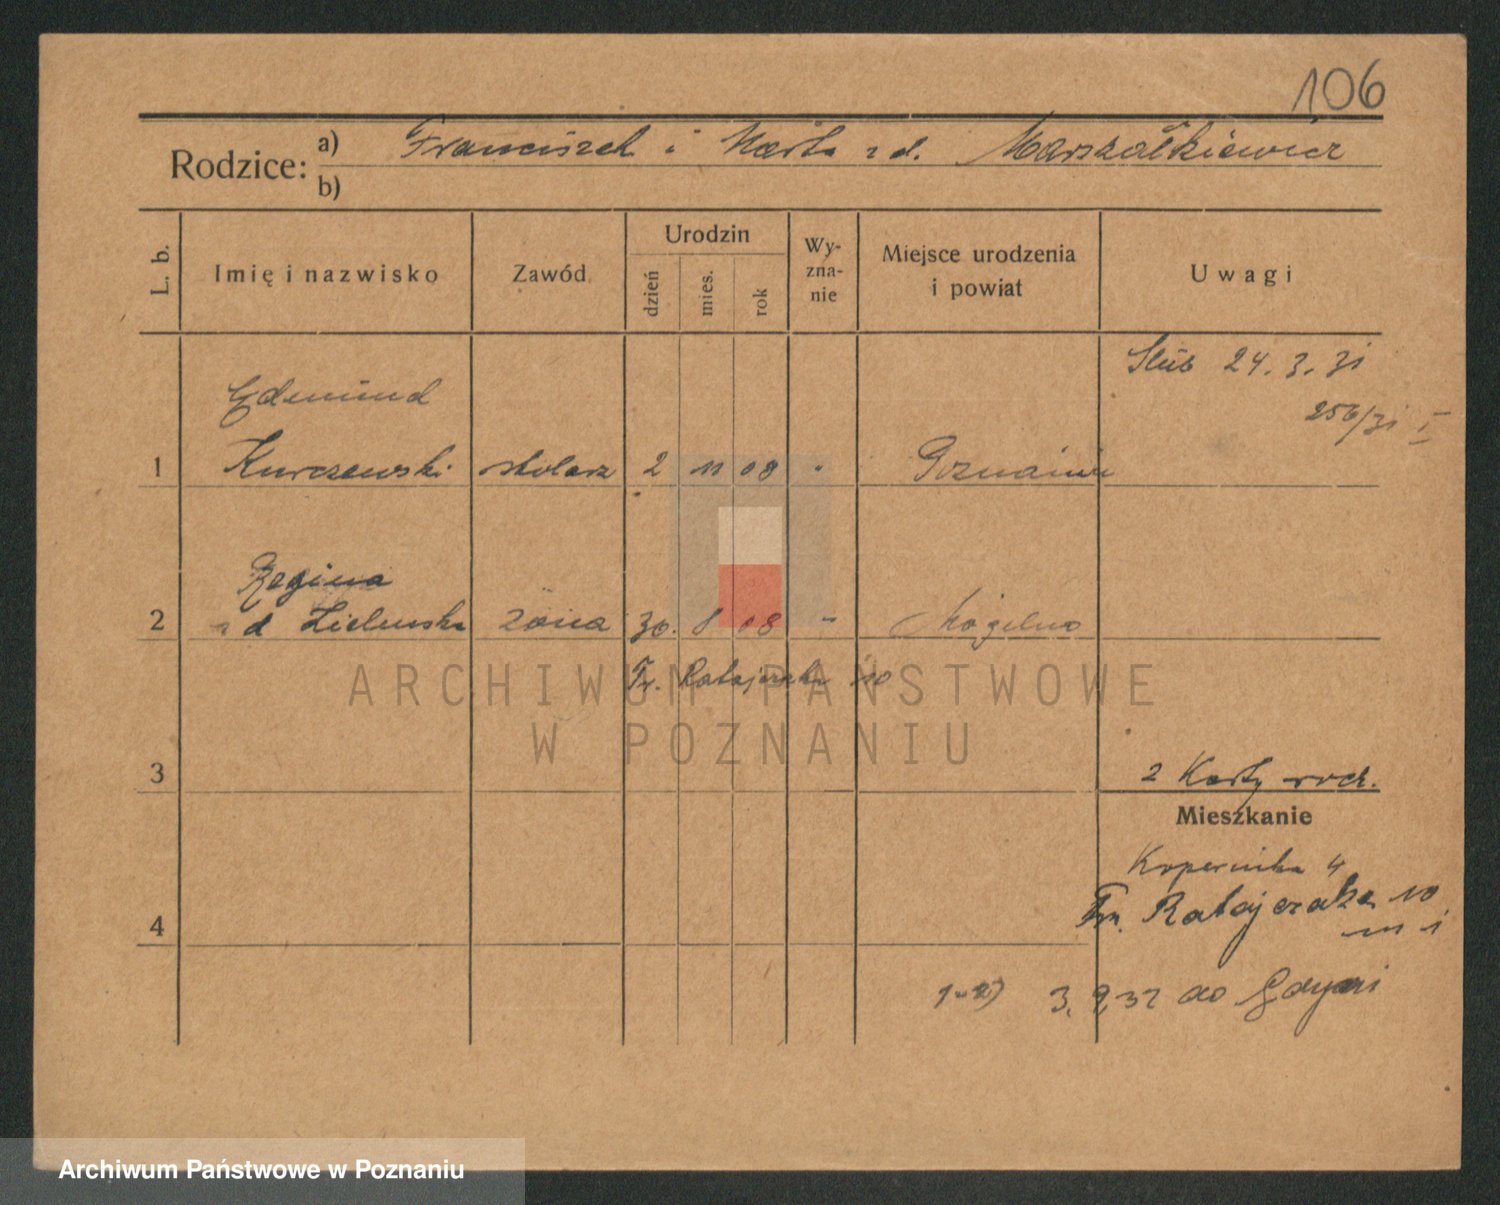 106
Rodzice: a) Franciszek i Marta z d. Marszałkiewicz
b)
L. b.
Imię i nazwisko
Zawód
Urodzin
dzień
mies.
rok
Wy-
zna-
nie
Miejsce urodzenia
i powiat
Uwagi
Ślub 24. 3. 31
256/31 I
Edmund
1 Kurczewski stolarz 2 11 08 Poznaniu
Regina
2 z d Zielinska żona 30. 8 08 - Mogilno
Fr. Ratajczaka 10
3
2 Karty
Mieszkanie
Kopernika 4
Fr. Ratajczaka 10
m 1
4
1-2) 3. 9. 32 do Gdyni
ARCHIWUM PAŃSTWOWE
W POZNANIU
Archiwum Państwowe w Poznaniu